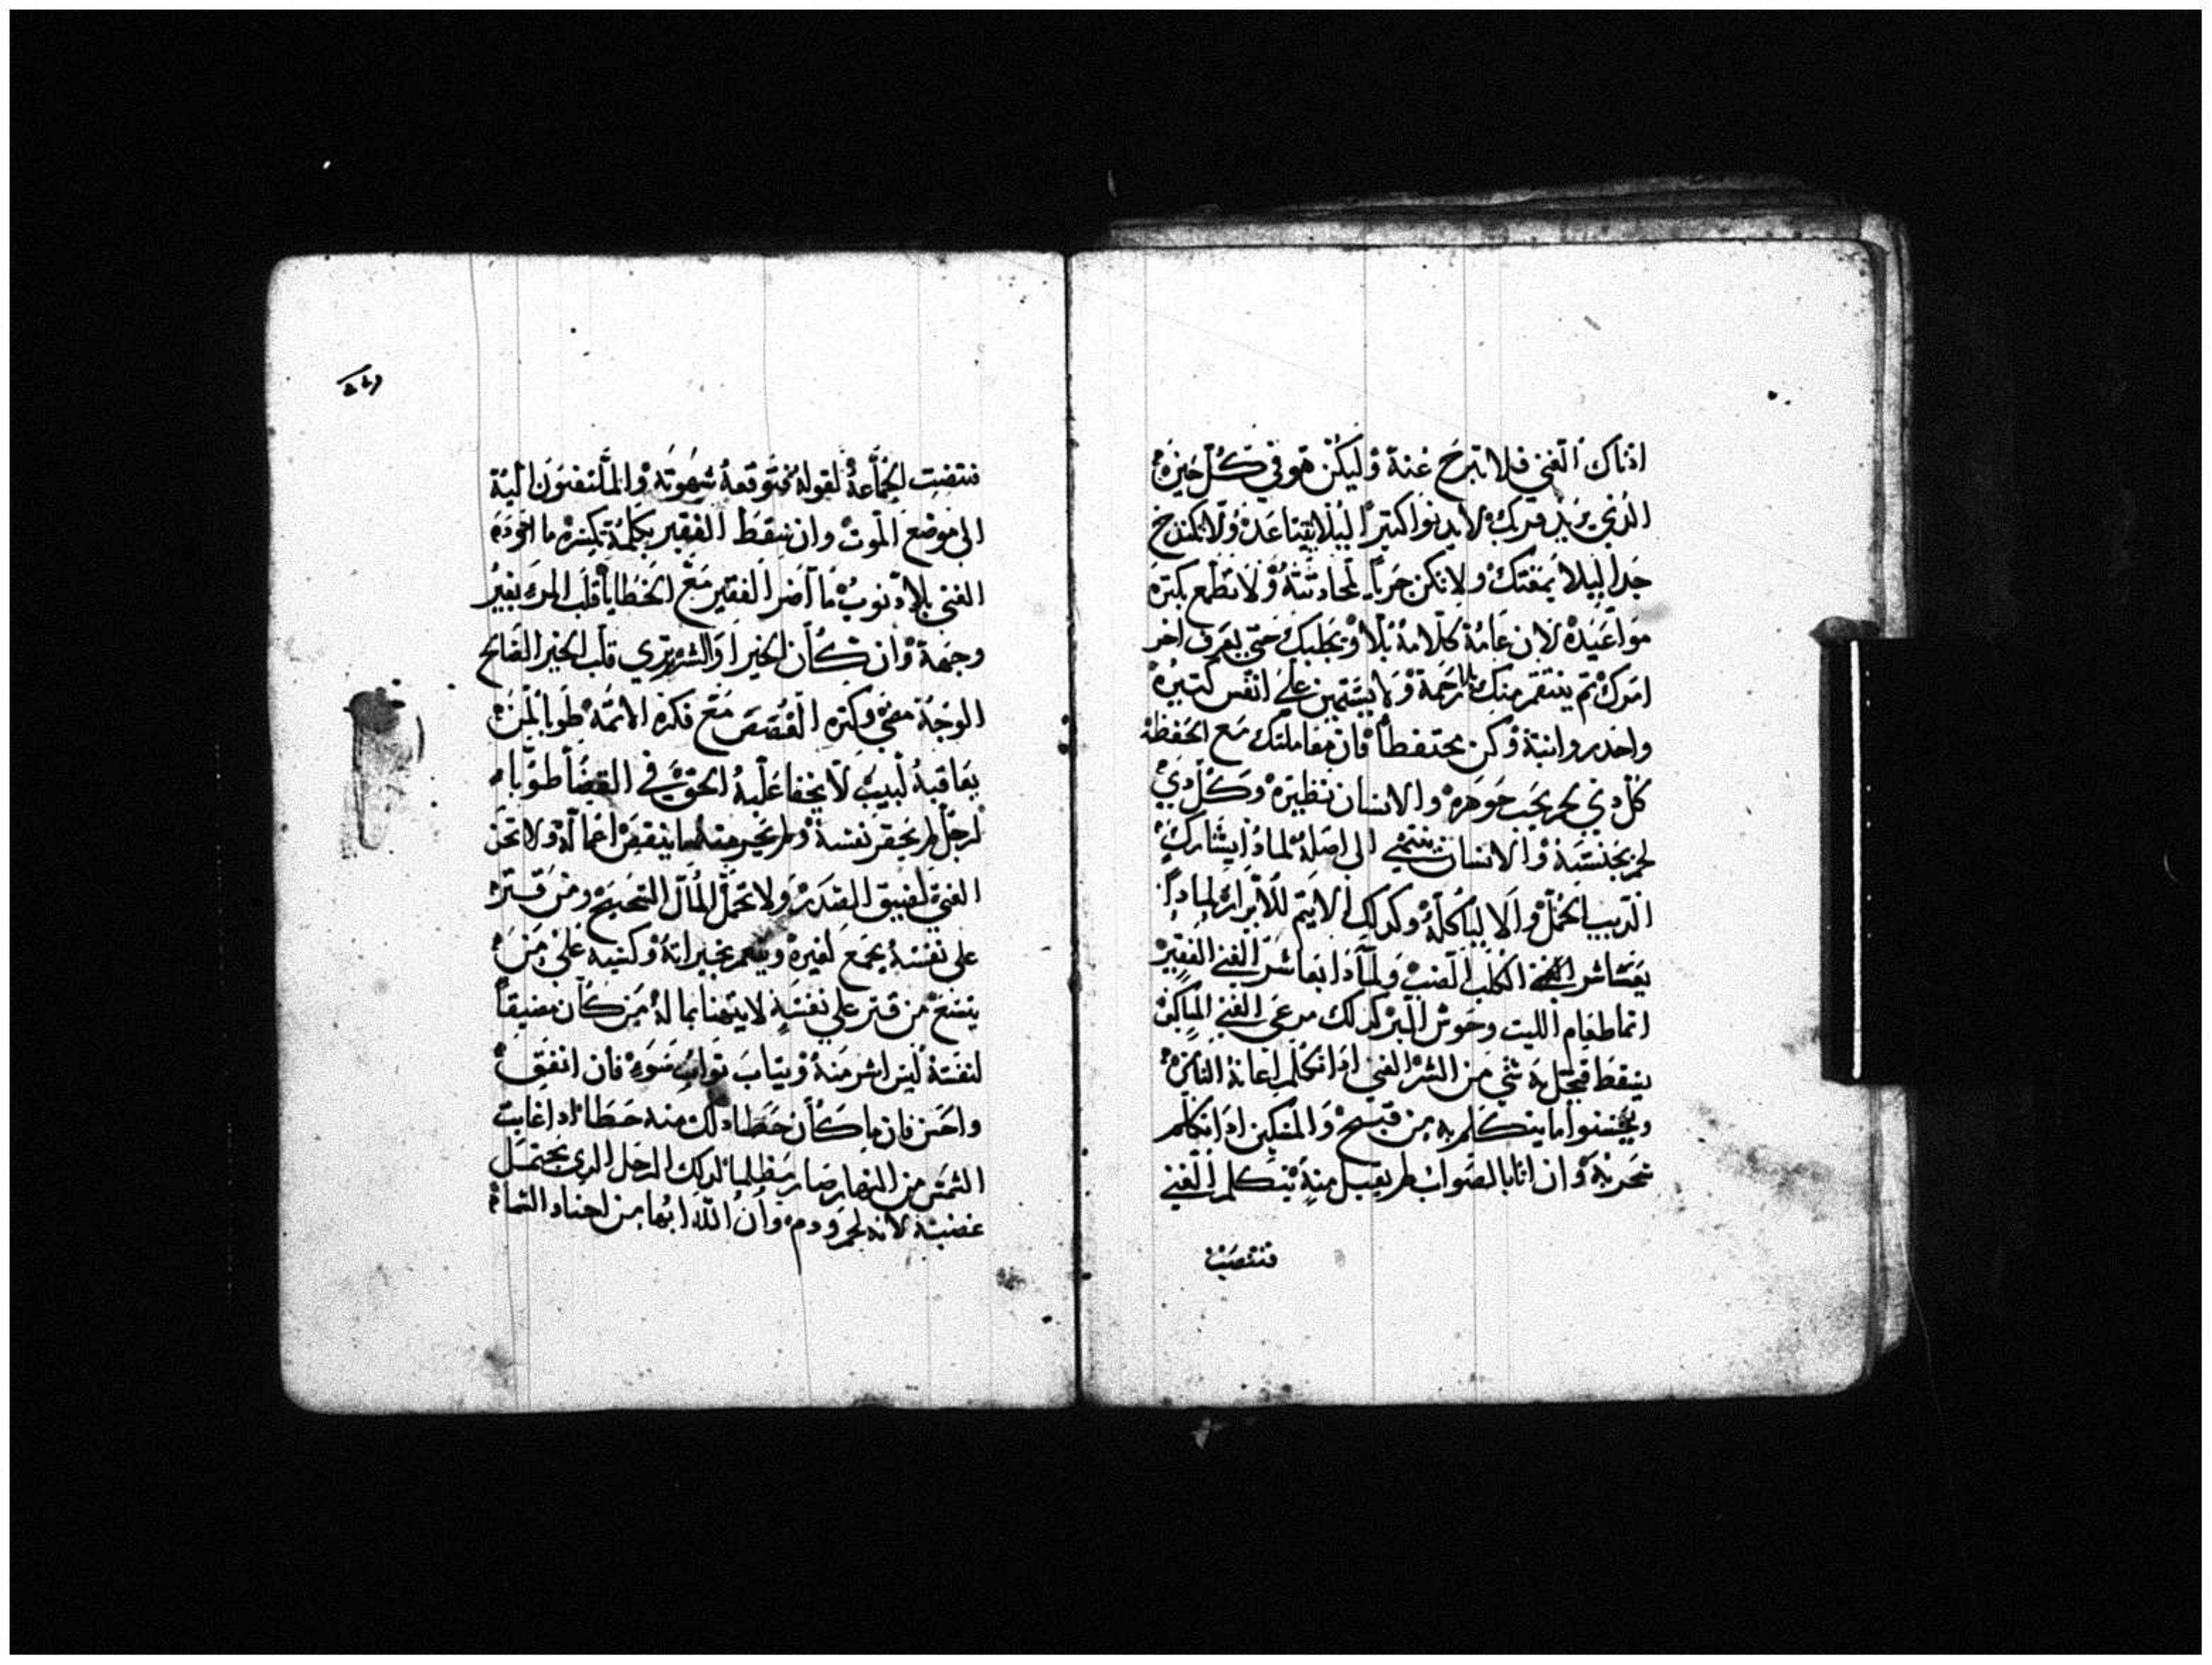 اذناك الغني فلا تبرح عنه وليكن هو في كل حين
الذي يريد قربك لا يدنوا كتيرا ليلا يتباعد ولا تكن
جدا ليلا يمقتك ولا تكن جريا لمحادتته ولا تطمع بكترة
مواعيده لان عامة كلامه بلا ويجلبك حتى يعرف اخر
امرك تم ينتقم منك بلا رحمة ولا يستهين علي انفس كتيره
واحدر وانبه وكن محتفظا فان معاملتك مع الحفظة
كل دي لحم يحب جوهره والانسان نظيره وكل دي
لحم بجنسه والانسان ينتهي الى اصله لمادا يشارك
الديب الحمل والا لياكله وكدلك الاتيم للابرار لمادا
يعاشر الكلب الضبع ولمادا يعاشر الغني الفقير
انما طعام الليت وحوش البر كدلك مرعى الغني المساكين
يسقط قبجل به شي من الشر الغني ادا تكلم اعانة الناس
ويحسنوا ما يتكلم به من قبيح والمسكين ادا تكلم
سخر به وان اتا بالصواب لم يقبل منه يتكلم الغني
فتنصت
٢٢٩
فتنصت الجماعة لقوله فتوقعه شهوته والملتفتون اليه
الى موضع الموت وان سقط الفقير بكلمة تكسره ما اجوده
الغني بلا دنوب ما اضر الفقير مع الخطايا قلب المرء يغير
وجهه وان كان لخيرا والشر تري قلب الخير الصالح
الوجه مضي وكتره القصص مع فكره الاتمه طوبا لمن
يعاقبه لبيب لا يخفا عليه الحق في القضا طوبا
لرجل لم يحقر نفسه ولم ينقص اعماله ولا تحزن
الغني لضيق الصدر ولا تحمل المال الشحيح ومن قتر
على نفسه يجمع لغيره ويتنعم بخيراته وكتبه على من
يتسع من قتر علي نفسه لا يتهنا بما له من كان مضيقا
لنفسه ليس اشر منه ويتاب تواب سوء فان انفق
واحسن فان ما كان خطا دلك منه خطا ادا غابت
الشمس من النهار صار مظلما كدلك الرجل الدي يحتمل
غضبه لانه لحم ودم وان الله ابها من اجناد السماء